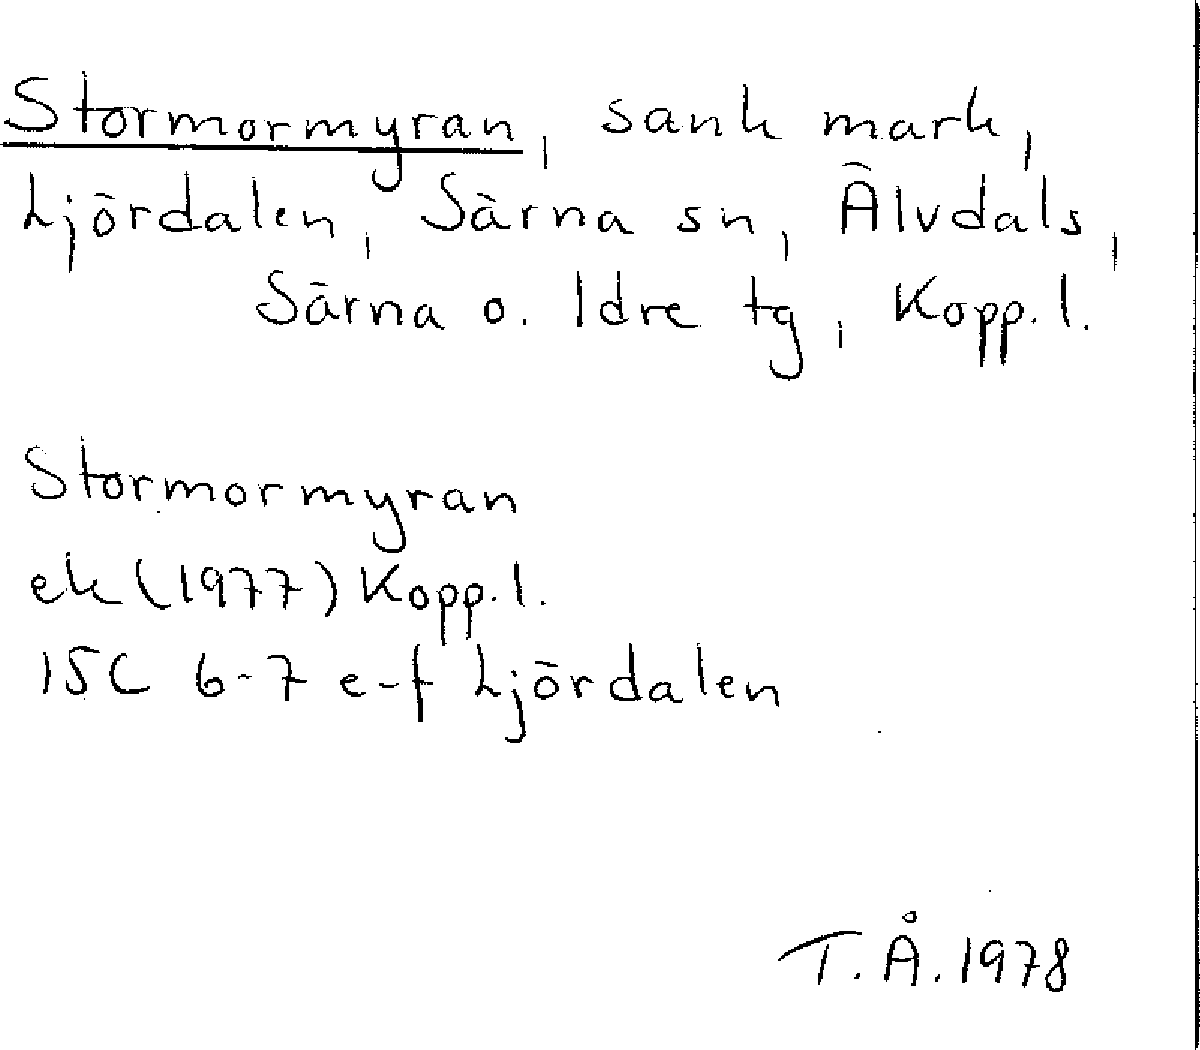 Stormormyran, sank mark,
Ljördalen, Särna sn, Älvdals,
Särna o. Idre tg, Kopp. l.
Stormormyran
ek (1977) Kopp. l.
15C 6-7 e-f Ljördalen
T. Å. 1978